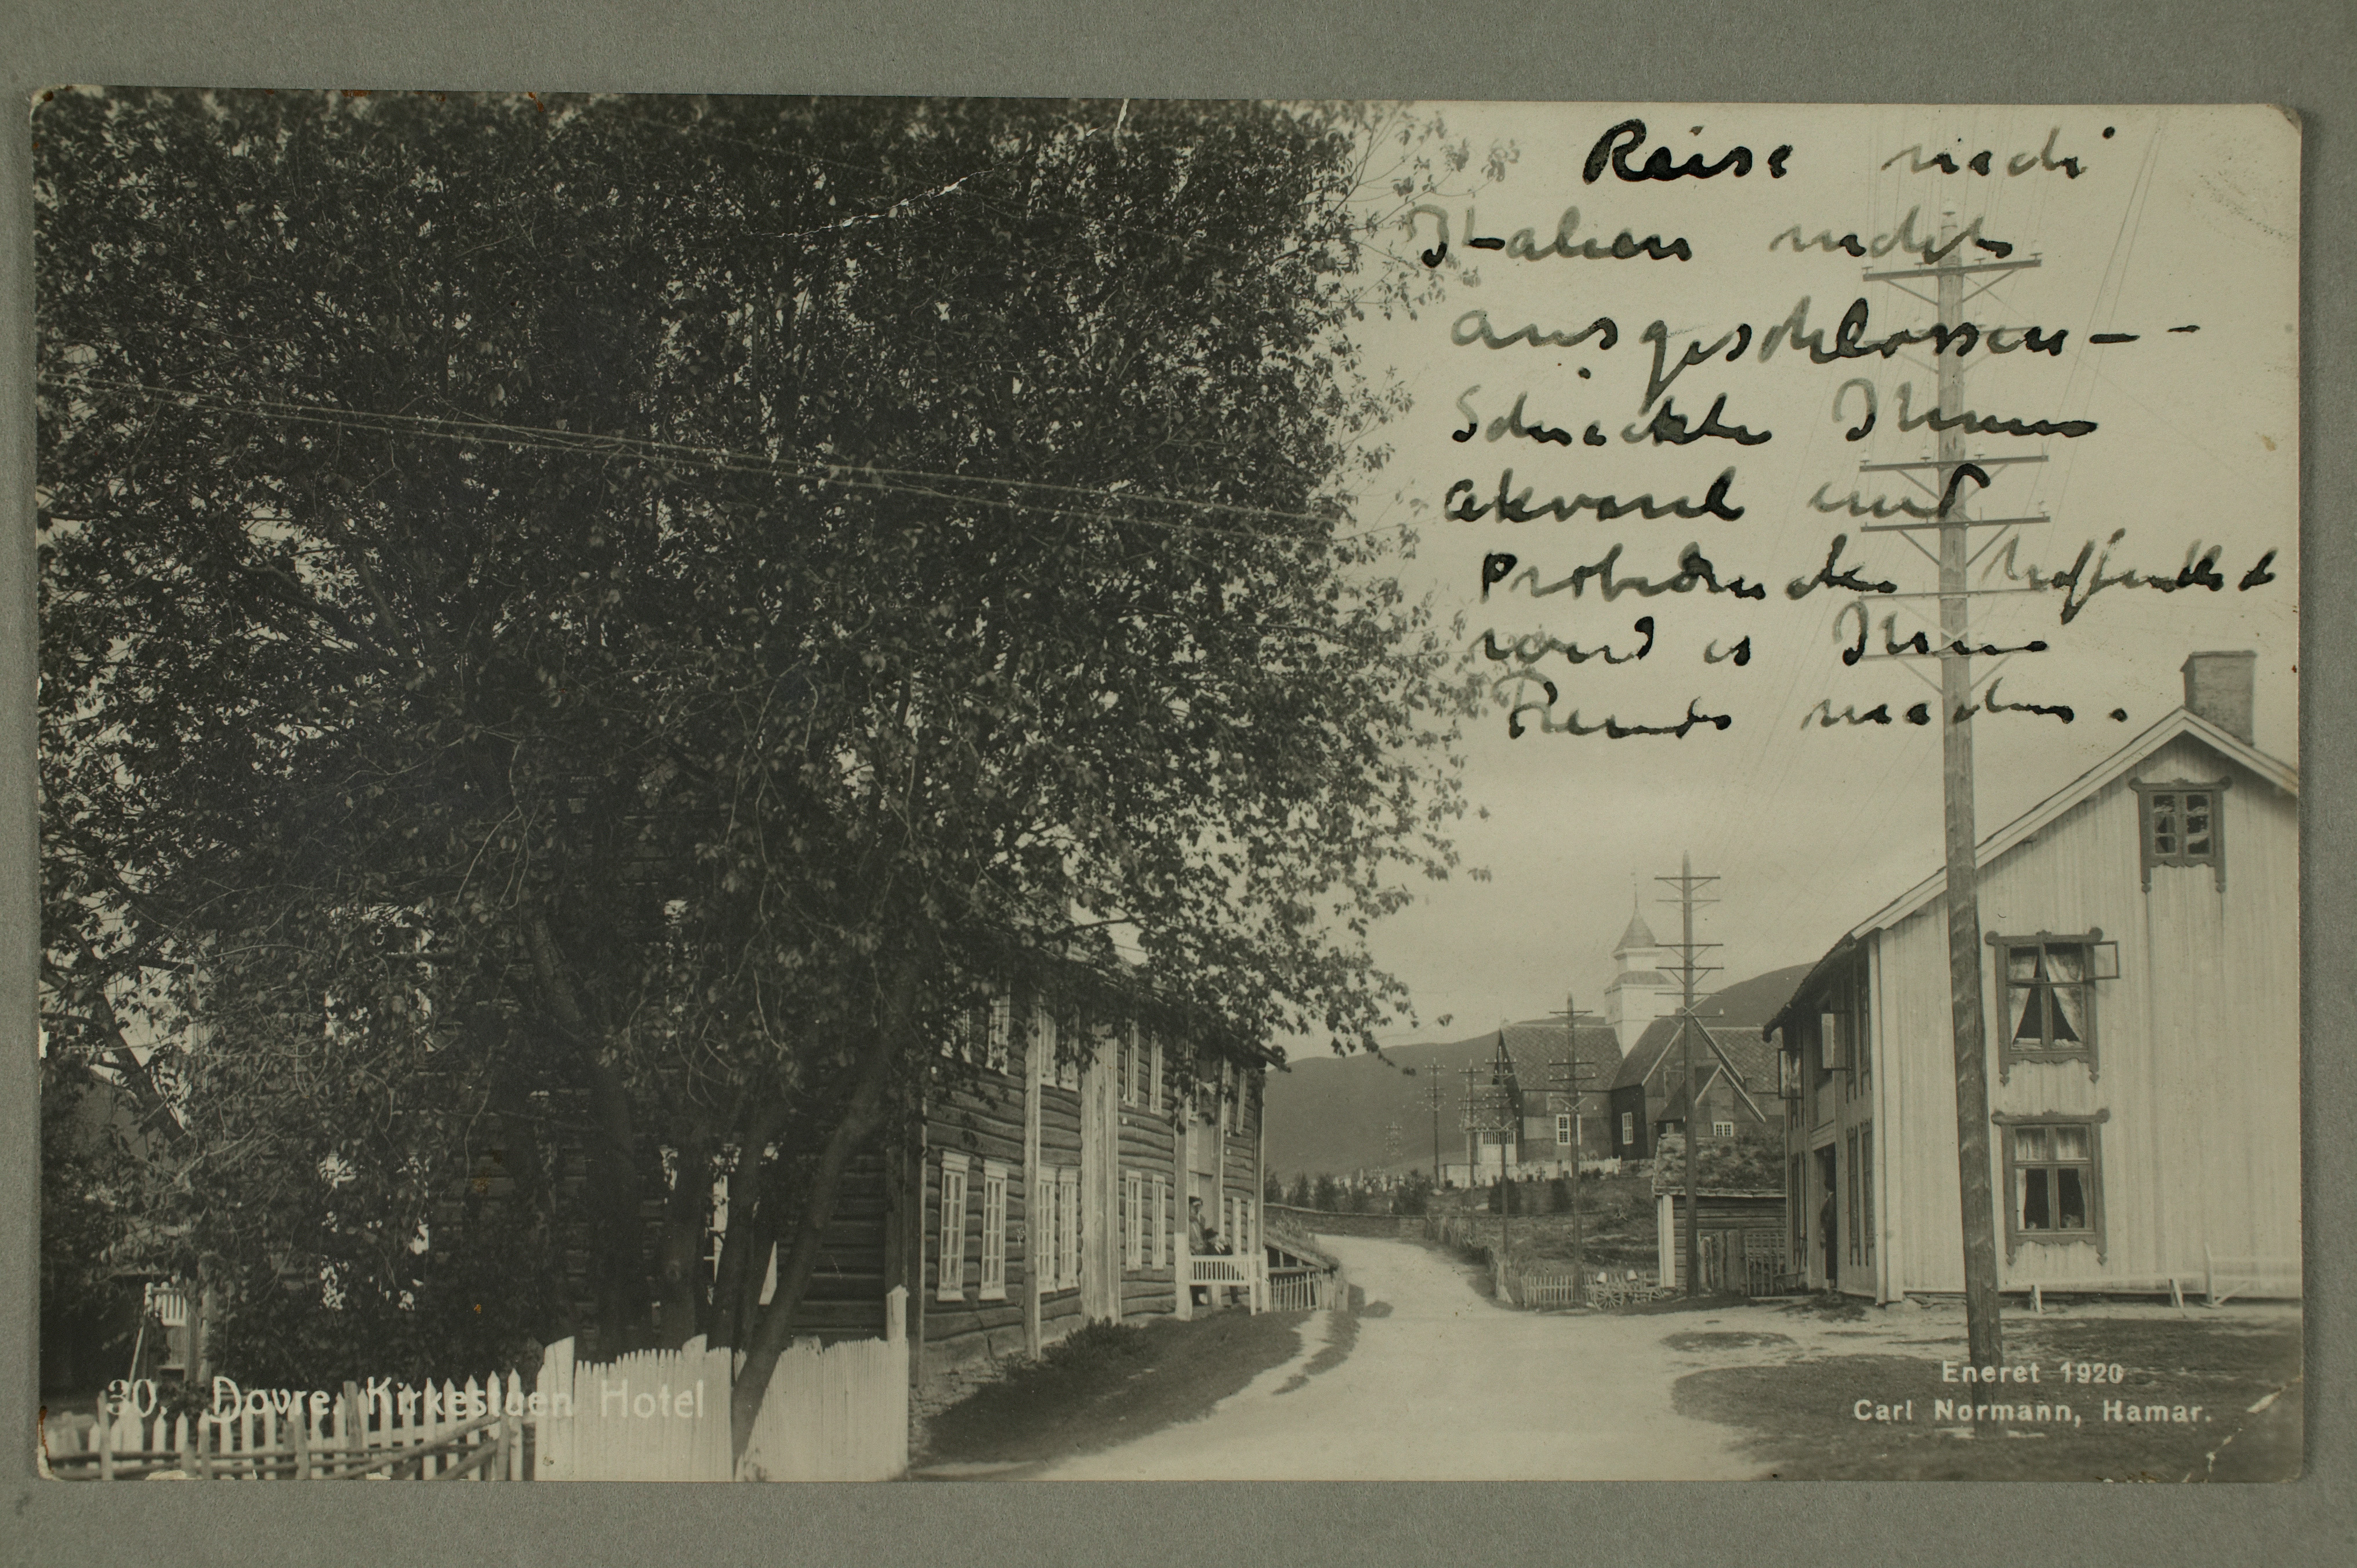 Reise nach
Italien nicht
ausgeschlossen – –
Schickte Ihnen
Akvarel und
Probedrucke hoffentlich
wird es Ihnen
Freude machen.
30. Dovre. Kirkestuen Hotel
Eneret 1920
Carl Normann, Hamar.